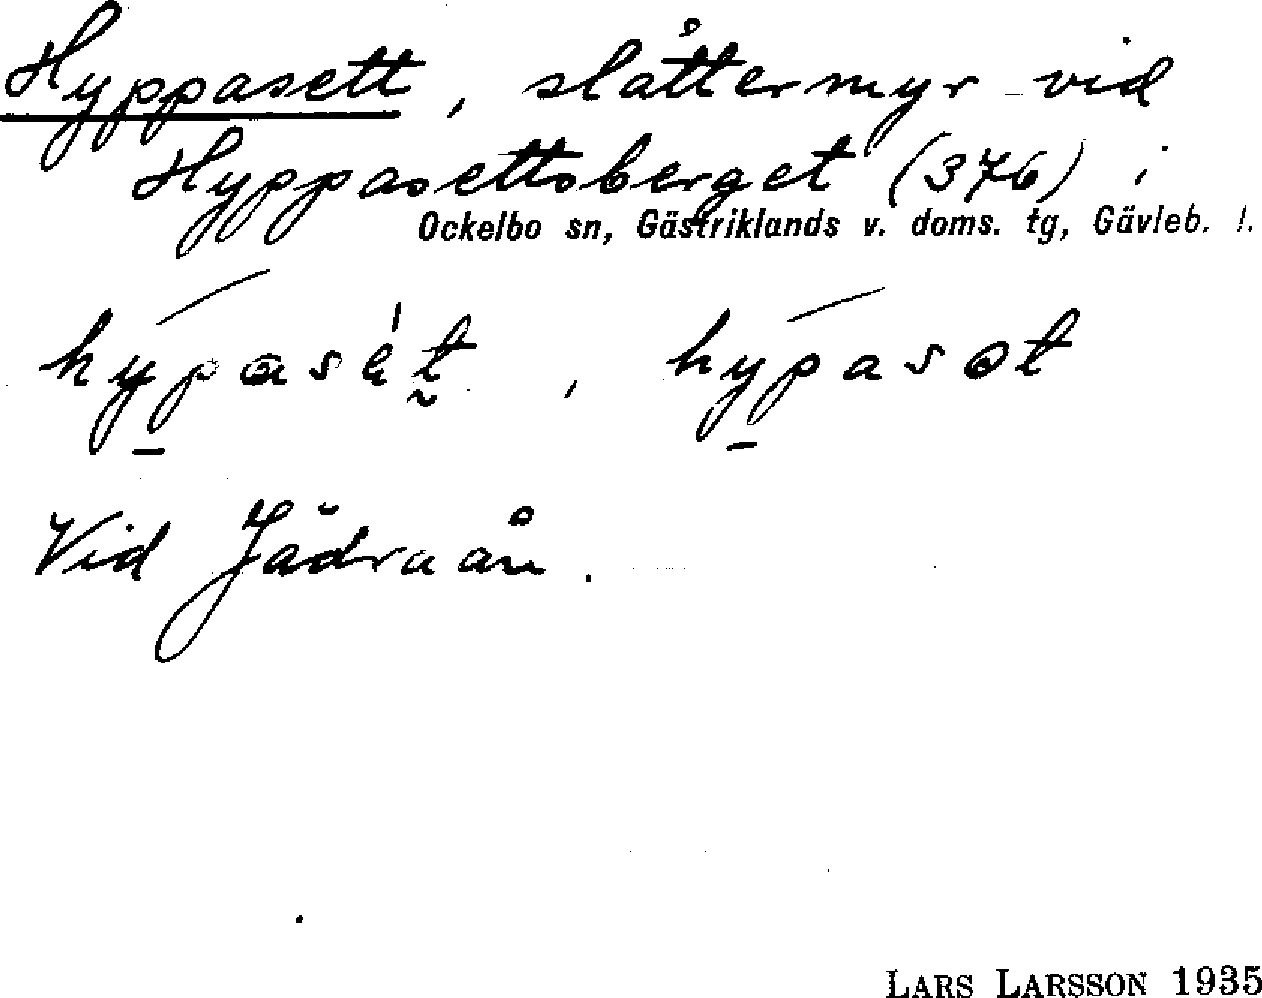 Hyppasett, slåttermyr vid
Hyppasettsberget (376) i
Ockelbo sn, Gästriklands v. doms. tg, Gävleb. l.
hypasèt, hypasət
Vid Jädraån.
LARS LARSSON 1935